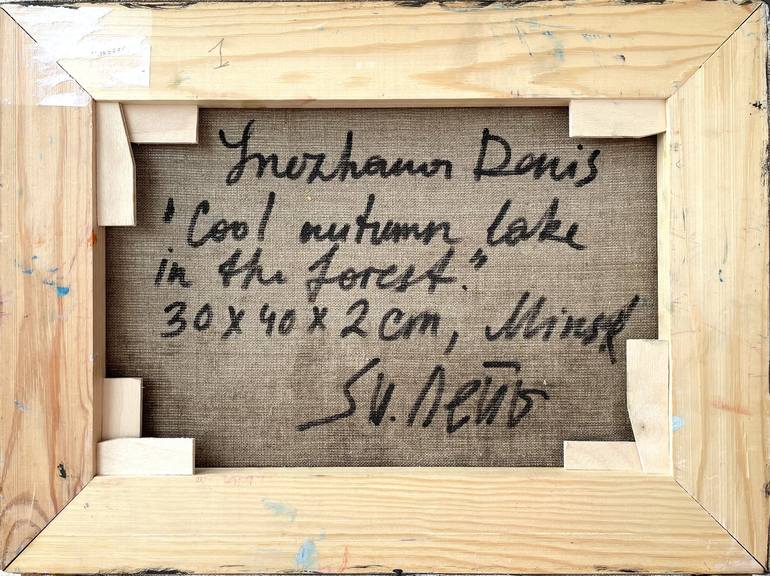 1
Denis
"Cool autumn lake
in the forest."
30 x 40 x 2 cm, Minsk